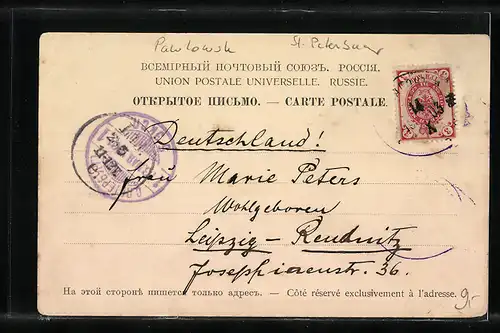 Pawlowsk St. Petersburg
ВСЕМІРНЫЙ ПОЧТОВЫЙ СОЮЗЪ. РОССІЯ.
UNION POSTALE UNIVERSELLE. RUSSIE.
ОТКРЫТОЕ ПИСЬМО. — CARTE POSTALE.
Deutschland!
Frau Marie Peters
Wohlgeboren
Leipzig - Reudnitz
Josephinenstr. 36.
На этой сторонѣ пишется только адресъ. — Côté réservé exclusivement à l'adresse.
9,-